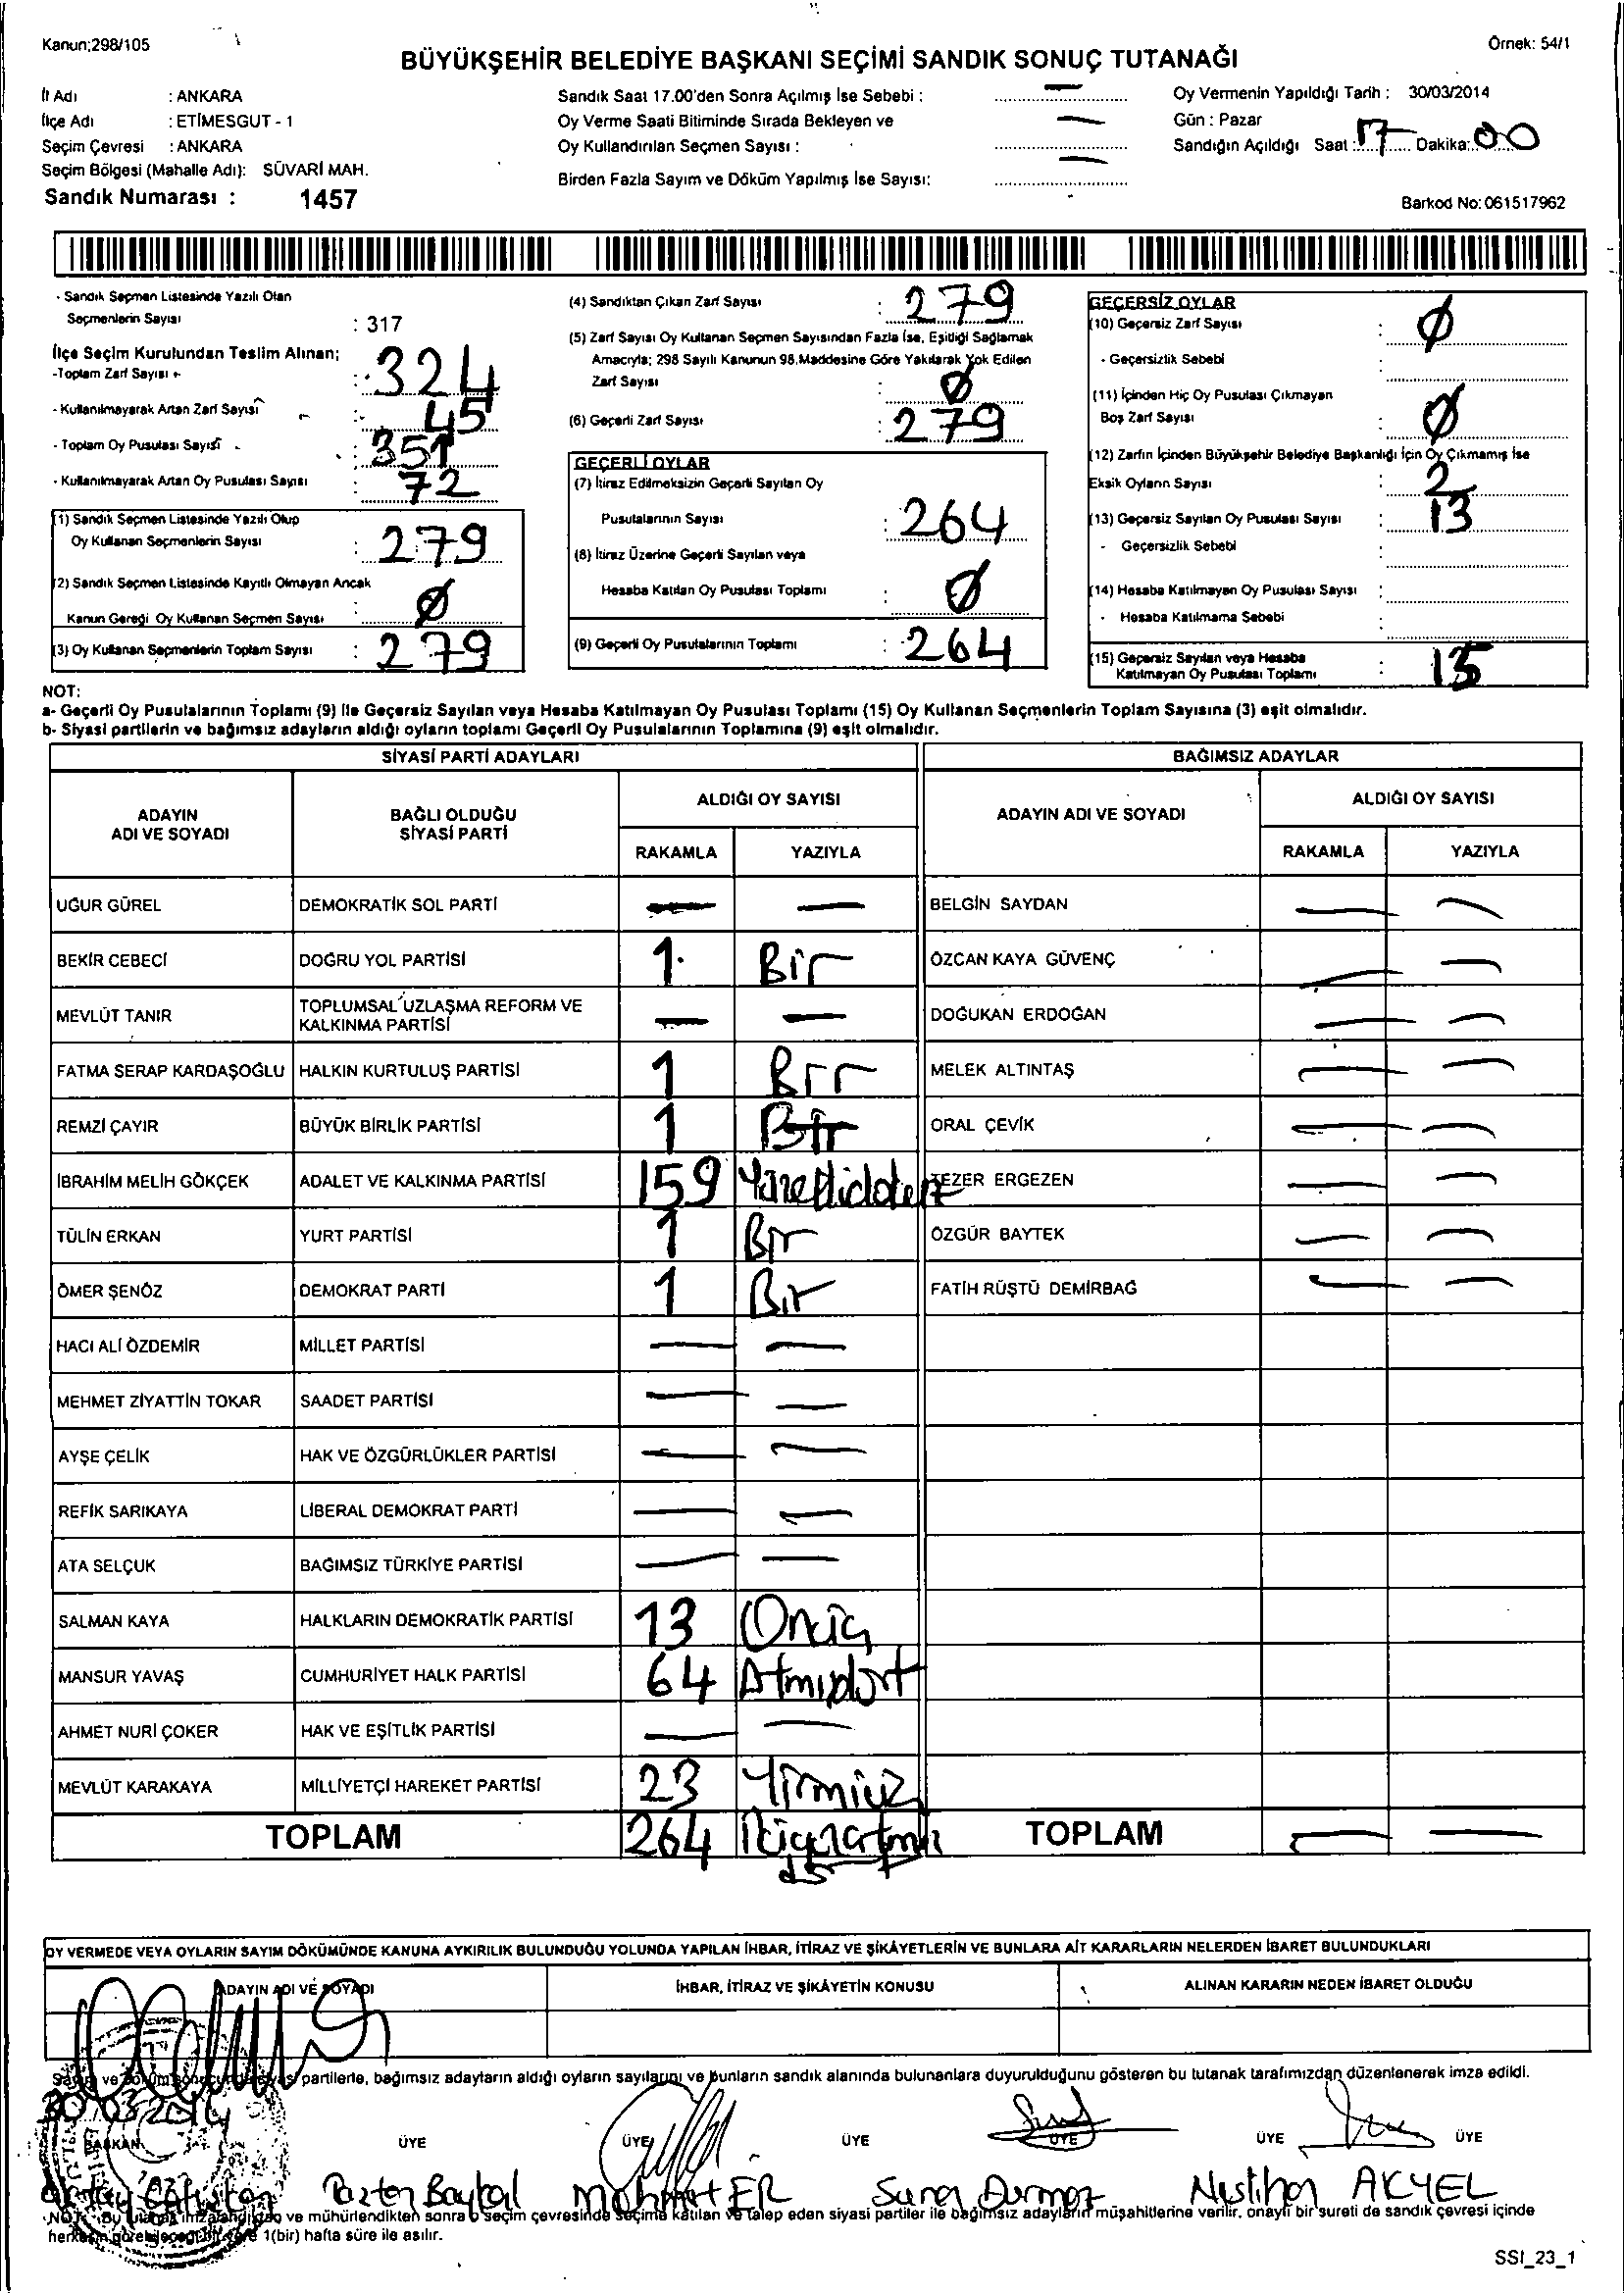 Kanun;298/105
Örnek: 54/1
BÜYÜKŞEHİR BELEDİYE BAŞKANI SEÇİMİ SANDIK SONUÇ TUTANAĞI
İl Adı : ANKARA
İlçe Adı : ETİMESGUT - 1
Seçim Çevresi : ANKARA
Seçim Bölgesi (Mahalle Adı): SÜVARİ MAH.
Sandık Numarası : 1457
Sandık Saat 17.00'den Sonra Açılmış İse Sebebi : —
Oy Verme Saati Bitiminde Sırada Bekleyen ve
Oy Kullandırılan Seçmen Sayısı : —
Birden Fazla Sayım ve Döküm Yapılmış İse Sayısı: —
Oy Vermenin Yapıldığı Tarih : 30/03/2014
Gün : Pazar
Sandığın Açıldığı Saat : 17 Dakika: 00
Barkod No: 061517962
- Sandık Seçmen Listesinde Yazılı Olan
Seçmenlerin Sayısı : 317
İlçe Seçim Kurulundan Teslim Alınan;
-Toplam Zarf Sayısı : 324
- Kullanılmayarak Artan Zarf Sayısı : 45
- Toplam Oy Pusulası Sayısı : 351
- Kullanılmayarak Artan Oy Pusulası Sayısı : 72
(1) Sandık Seçmen Listesinde Yazılı Olup
Oy Kullanan Seçmenlerin Sayısı : 279
(2) Sandık Seçmen Listesinde Kayıtlı Olmayan Ancak
Kanun Gereği Oy Kullanan Seçmen Sayısı : Ø
(3) Oy Kullanan Seçmenlerin Toplam Sayısı : 279
(4) Sandıktan Çıkan Zarf Sayısı : 279
(5) Zarf Sayısı Oy Kullanan Seçmen Sayısından Fazla İse, Eşitliği Sağlamak
Amacıyla; 298 Sayılı Kanunun 98.Maddesine Göre Yakılarak Yok Edilen
Zarf Sayısı : Ø
(6) Geçerli Zarf Sayısı : 279
GEÇERLİ OYLAR
(7) İtiraz Edilmeksizin Geçerli Sayılan Oy
Pusulalarının Sayısı : 264
(8) İtiraz Üzerine Geçerli Sayılan veya
Hesaba Katılan Oy Pusulası Toplamı : Ø
(9) Geçerli Oy Pusulalarının Toplamı : 264
GEÇERSİZ OYLAR
(10) Geçersiz Zarf Sayısı : Ø
- Geçersizlik Sebebi :
(11) İçinden Hiç Oy Pusulası Çıkmayan
Boş Zarf Sayısı : Ø
(12) Zarfın İçinden Büyükşehir Belediye Başkanlığı İçin Oy Çıkmamış İse
Eksik Oyların Sayısı : 2
(13) Geçersiz Sayılan Oy Pusulası Sayısı : 13
- Geçersizlik Sebebi
(14) Hesaba Katılmayan Oy Pusulası Sayısı :
- Hesaba Katılmama Sebebi
(15) Geçersiz Sayılan veya Hesaba
Katılmayan Oy Pusulası Toplamı : 15
NOT:
a- Geçerli Oy Pusulalarının Toplamı (9) İle Geçersiz Sayılan veya Hesaba Katılmayan Oy Pusulası Toplamı (15) Oy Kullanan Seçmenlerin Toplam Sayısına (3) eşit olmalıdır.
b- Siyasi partilerin ve bağımsız adayların aldığı oyların toplamı Geçerli Oy Pusulalarının Toplamına (9) eşit olmalıdır.
SİYASİ PARTİ ADAYLARI
ADAYIN ADI VE SOYADI
BAĞLI OLDUĞU SİYASİ PARTİ
ALDIĞI OY SAYISI
RAKAMLA YAZIYLA
UĞUR GÜREL DEMOKRATİK SOL PARTİ — —
BEKİR CEBECİ DOĞRU YOL PARTİSİ 1 Bir
MEVLÜT TANIR TOPLUMSAL UZLAŞMA REFORM VE KALKINMA PARTİSİ — —
FATMA SERAP KARDAŞOĞLU HALKIN KURTULUŞ PARTİSİ 1 Bir
REMZİ ÇAYIR BÜYÜK BİRLİK PARTİSİ 1 Bir
İBRAHİM MELİH GÖKÇEK ADALET VE KALKINMA PARTİSİ 159
TÜLİN ERKAN YURT PARTİSİ 1 Bir
ÖMER ŞENÖZ DEMOKRAT PARTİ 1 Bir
HACI ALİ ÖZDEMİR MİLLET PARTİSİ — —
MEHMET ZİYATTİN TOKAR SAADET PARTİSİ — —
AYŞE ÇELİK HAK VE ÖZGÜRLÜKLER PARTİSİ — —
REFİK SARIKAYA LİBERAL DEMOKRAT PARTİ — —
ATA SELÇUK BAĞIMSIZ TÜRKİYE PARTİSİ — —
SALMAN KAYA HALKLARIN DEMOKRATİK PARTİSİ 13 Onüç
MANSUR YAVAŞ CUMHURİYET HALK PARTİSİ 64 Atmışdört
AHMET NURİ ÇOKER HAK VE EŞİTLİK PARTİSİ — —
MEVLÜT KARAKAYA MİLLİYETÇİ HAREKET PARTİSİ 23
TOPLAM 264
BAĞIMSIZ ADAYLAR
ADAYIN ADI VE SOYADI
ALDIĞI OY SAYISI
RAKAMLA YAZIYLA
BELGİN SAYDAN — —
ÖZCAN KAYA GÜVENÇ — —
DOĞUKAN ERDOĞAN — —
MELEK ALTINTAŞ — —
ORAL ÇEVİK — —
TEZER ERGEZEN — —
ÖZGÜR BAYTEK — —
FATİH RÜŞTÜ DEMİRBAĞ — —
TOPLAM — —
OY VERMEDE VEYA OYLARIN SAYIM DÖKÜMÜNDE KANUNA AYKIRILIK BULUNDUĞU YOLUNDA YAPILAN İHBAR, İTİRAZ VE ŞİKÂYETLERİN VE BUNLARA AİT KARARLARIN NELERDEN İBARET BULUNDUKLARI
ADAYIN ADI VE SOYADI
İHBAR, İTİRAZ VE ŞİKÂYETİN KONUSU
ALINAN KARARIN NEDEN İBARET OLDUĞU
Sayım ve döküm sonucunda siyasi partilerle, bağımsız adayların aldığı oyların sayılarını ve bunların sandık alanında bulunanlara duyurulduğunu gösteren bu tutanak tarafımızdan düzenlenerek imza edildi.
30/03/2014
BAŞKAN ÜYE ÜYE ÜYE ÜYE ÜYE ÜYE
Baykal Mehmet ER Neslihan AKYEL
NOT: Bu tutanak imzalandıktan ve mühürlendikten sonra o seçim çevresinde seçime katılan ve talep eden siyasi partiler ile bağımsız adayların müşahitlerine verilir, onaylı bir sureti de sandık çevresi içinde
herkesin görebileceği bir yere 1(bir) hafta süre ile asılır.
SSI_23_1